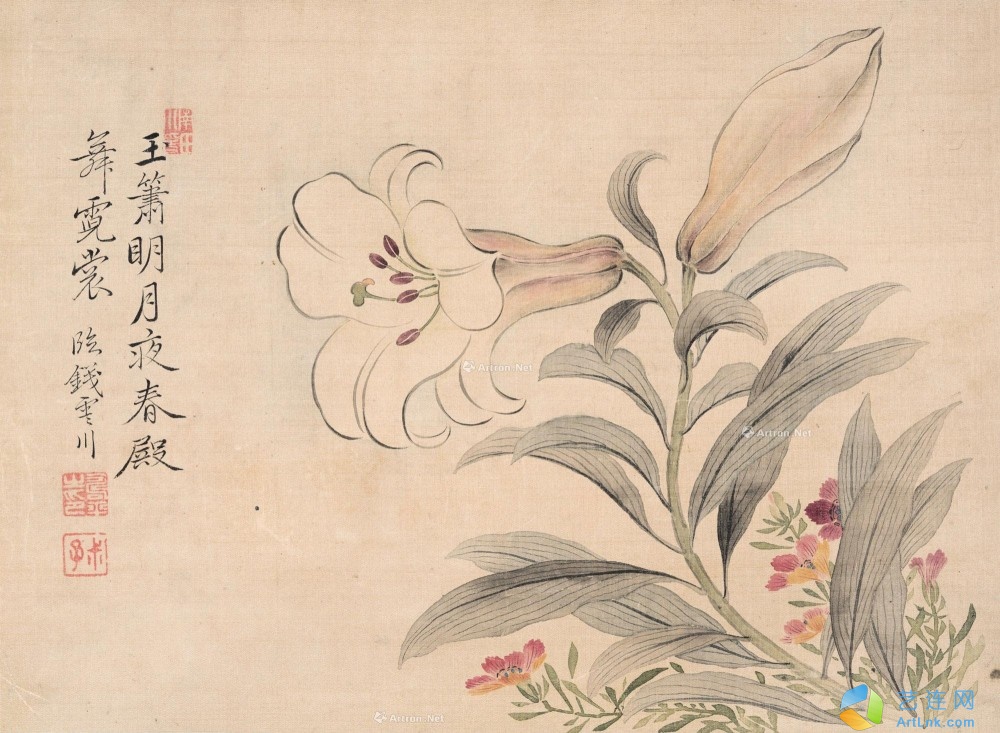 王簫明月夜春殿
舞霓裳
臨錢霅川
Artron.Net
Artron.Net
Artron.Net
艺连网
ArtLnk.com